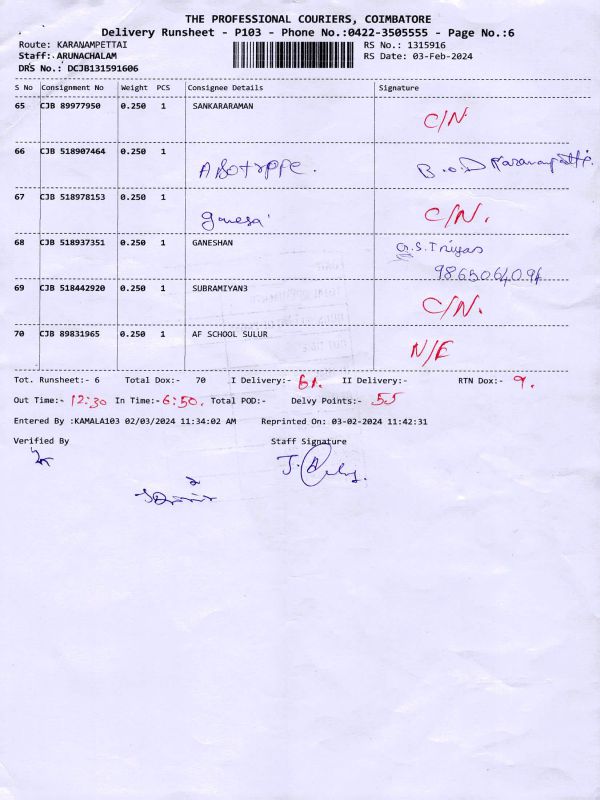 THE PROFESSIONAL COURIERS, COIMBATORE
Delivery Runsheet - P103 - Phone No.:0422-3505555 - Page No.:6
Route: KARANAMPETTAI RS No.: 1315916
Staff: ARUNACHALAM RS Date: 03-Feb-2024
DRS No.: DCJB131591606
S No Consignment No Weight PCS Consignee Details Signature
65 CJB 89977950 0.250 1 SANKARARAMAN
C/N
66 CJB 518907464 0.250 1
B.O.D
67 CJB 518978153 0.250 1
C/N.
68 CJB 518937351 0.250 1 GANESHAN
69 CJB 518442920 0.250 1 SUBRAMIYAN3
C/N.
70 CJB 89831965 0.250 1 AF SCHOOL SULUR
N/E
Tot. Runsheet:- 6 Total Dox:- 70 I Delivery:- 61. II Delivery:- RTN Dox:- 9.
Out Time:- 12:30 In Time:- 6:50. Total POD:- Delvy Points:- 55
Entered By :KAMALA103 02/03/2024 11:34:02 AM Reprinted On: 03-02-2024 11:42:31
Verified By Staff Signature